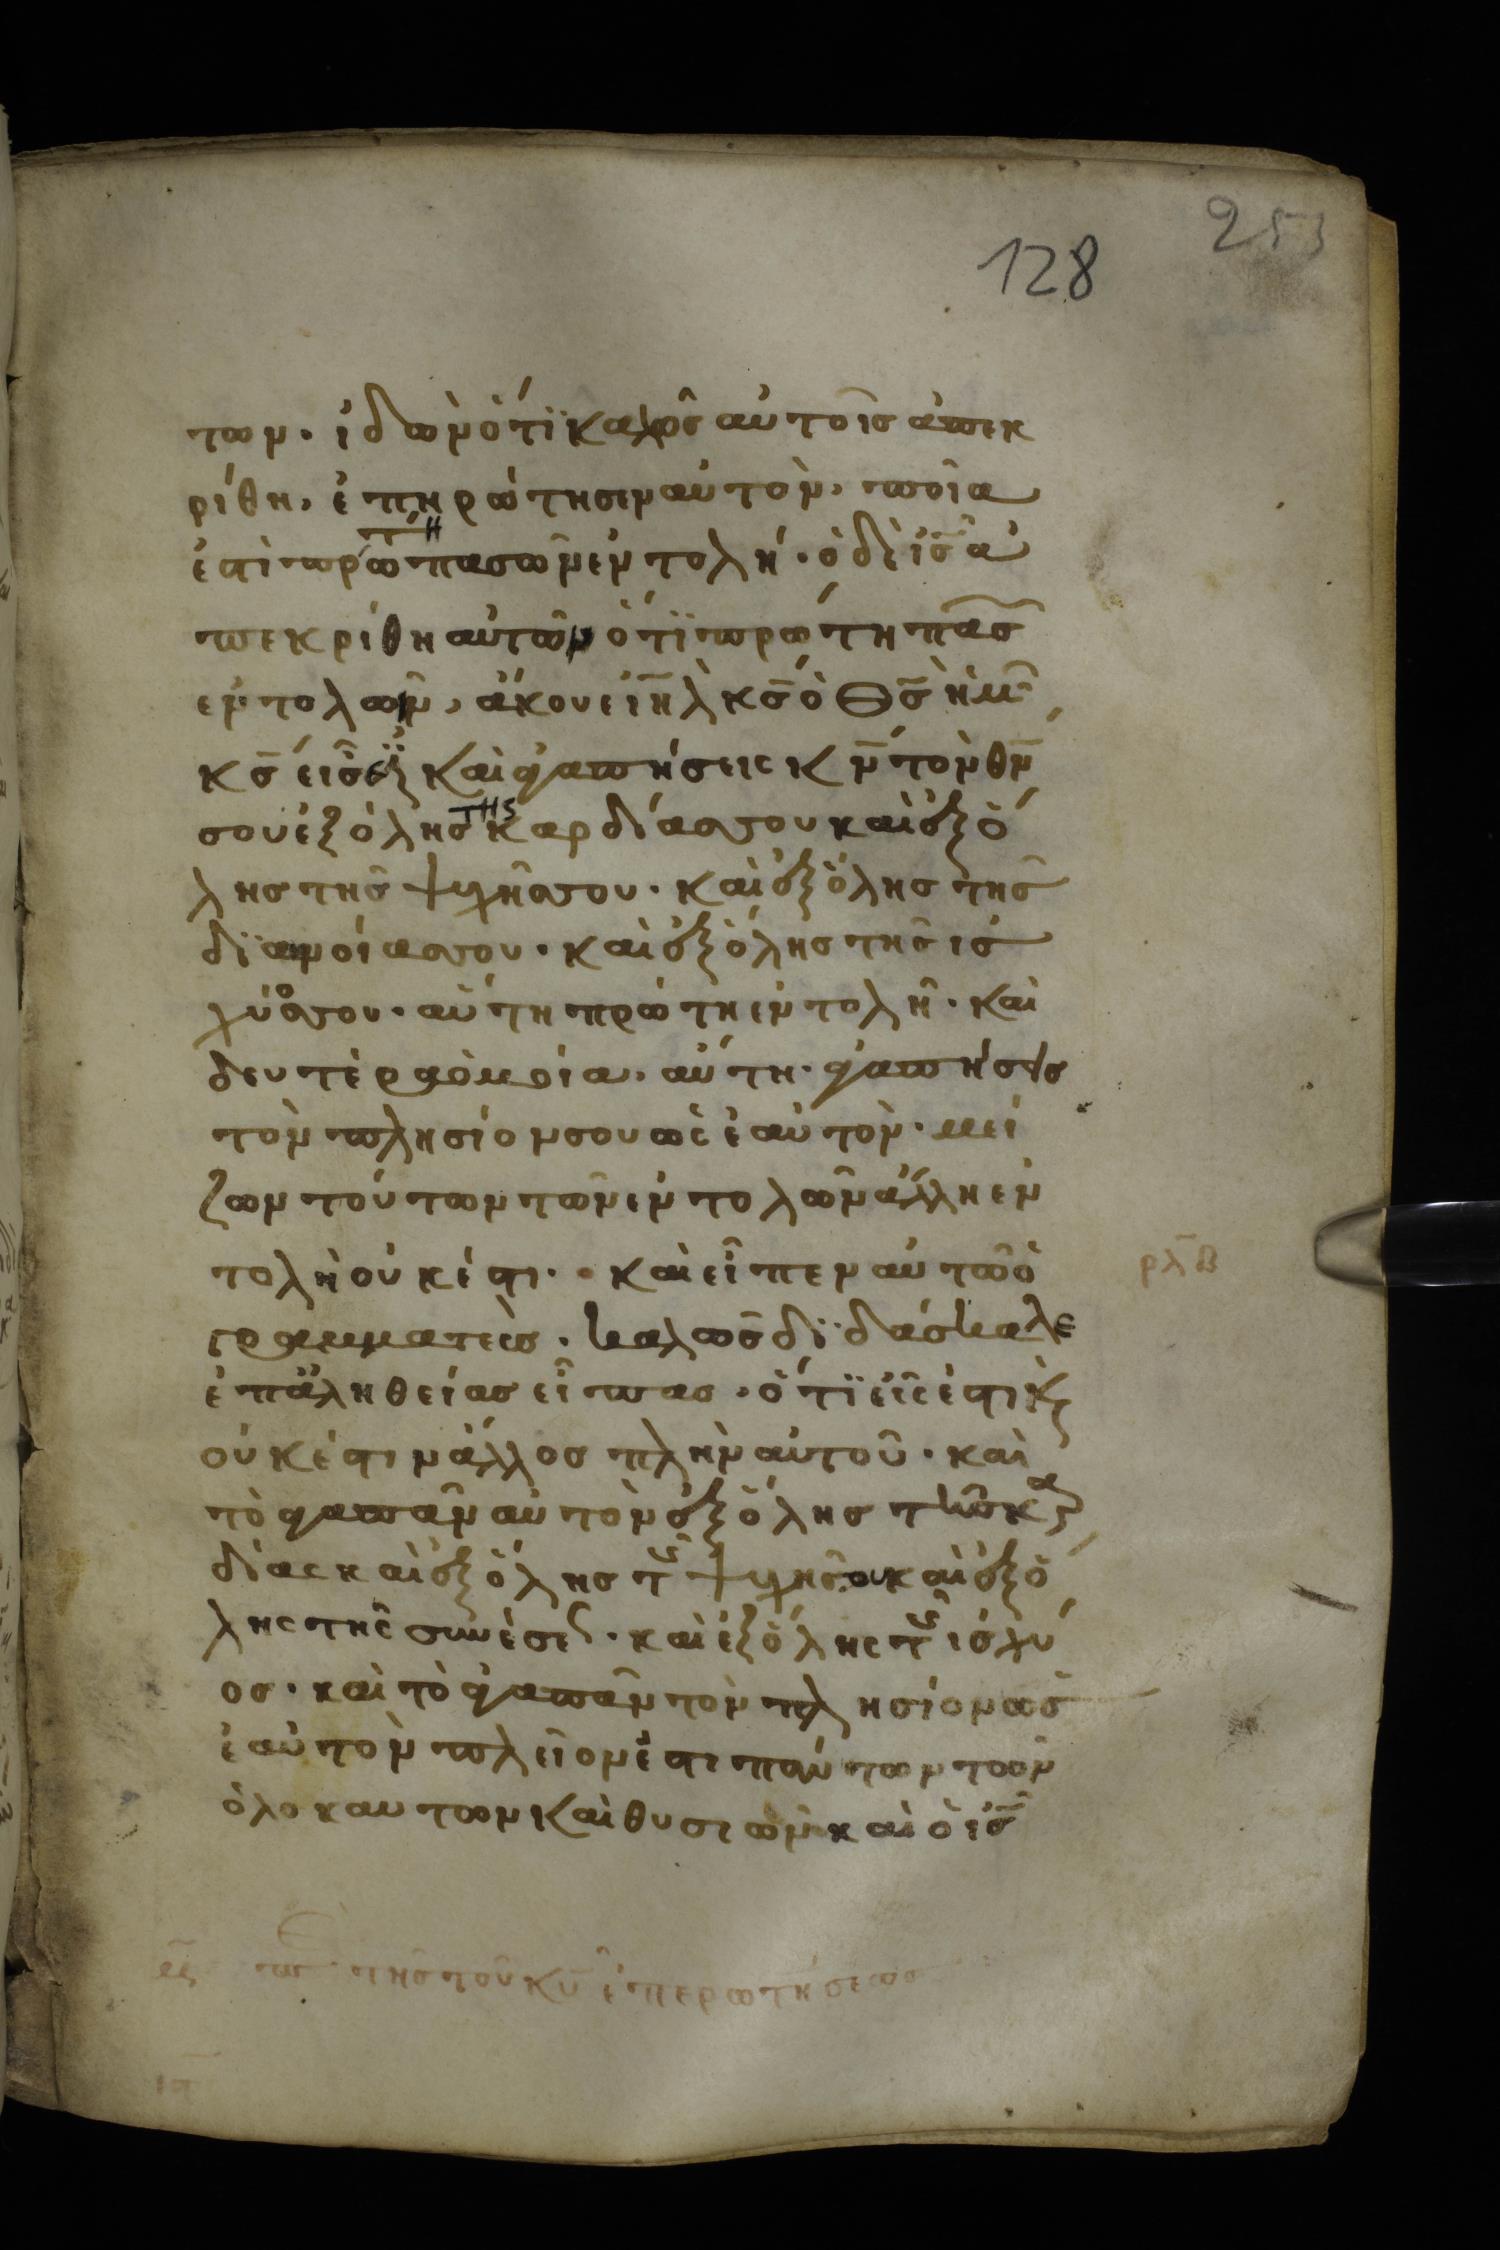 253
128
των· ἰδὼν ὅτι καλῶς αὐτοῖς ἀπεκ
ρίθη, ἐπηρώτησεν αὐτὸν, ποῖα
ἐστὶ πρώτη πασῶν ἐντολή· ὁ δὲ ις̅ ἀ
πεκρίθη αὐτῶ ὅτι πρώτη πασ
ἐντολῶν, ἄκουε ιη̅λ κς̅ ὁ θς̅ ἡμ
κς̅ εἷς ἐστι καὶ ἀγαπήσεις κν̅ τὸν θν̅
σου ἐξ ὅλης τῆς καρδίας σου καὶ ἐξ ὅ
λης τῆς ψυχῆς σου· καὶ ἐξ ὅλης τῆς
διανοίας σου· καὶ ἐξ ὅλης τῆς ἰσ
χύος σου· αὕτη πρώτη ἐντολῆ· καὶ
δευτέρα ὁμοία, αὕτη· ἀγαπήσεις
τὸν πλησίον σου ὡς ἑαυτὸν· μεί
ζων τούτων τῶν ἐντολῶν ἄλλη ἐν
τολὴ οὐκ ἔστι· καὶ εἶπεν αὐτῶ ὁ
ρλβ
γραμματεὺς· καλῶς διδάσκαλε
ἐπ ἀληθείας εἶπας, ὅτι εἷς ἐστι κ
οὐκ ἔστιν ἄλλος πλὴν αὐτοῦ· καὶ
τὸ ἀγαπᾶν αὐτὸν ἐξ ὅλης τῆς καρ
δίας καὶ ἐξ ὅλης τῆς ψυχῆς καὶ ἐξ ὅ
λης τῆς συνέσεως· καὶ ἐξ ὅλης τῆς ἰσχύ
ος· καὶ τὸ ἀγαπᾶν τὸν πλησίον ὡς
ἑαυτὸν πλεῖον ἐστι πάντων τῶν
ὁλοκαυτων καὶ θυσιῶν καὶ ὁ ις̅
τῆς τοῦ κυ̅ ἐπερωτήσεως